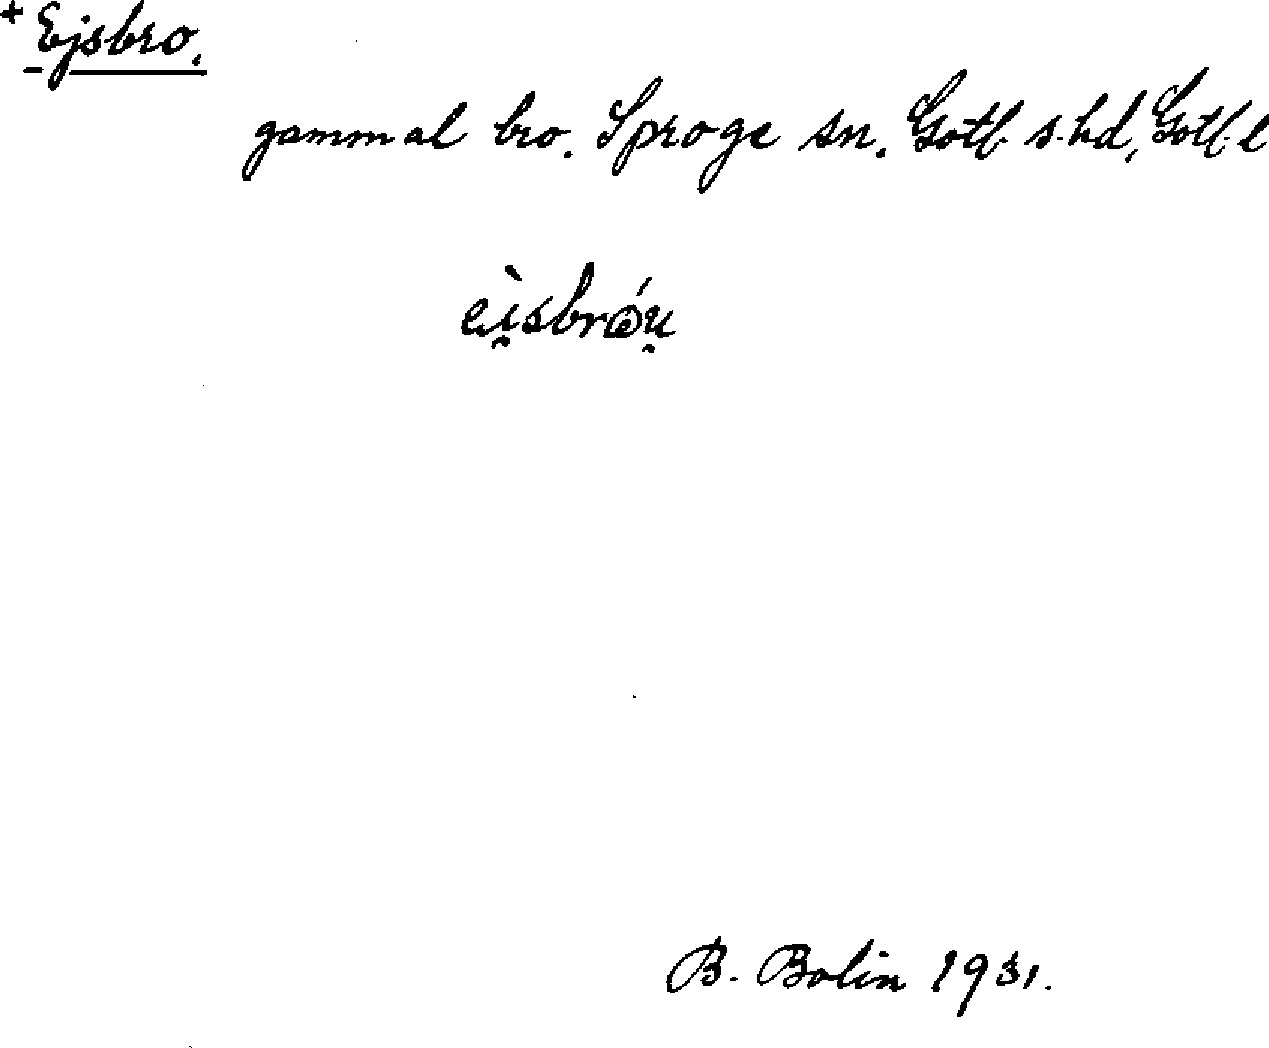 + Ejsbro.
gammal bro. Sproge sn. Gotl. s. hd, Gotl. l
eì̯sbrǿu̯
B. Bolin 1931.